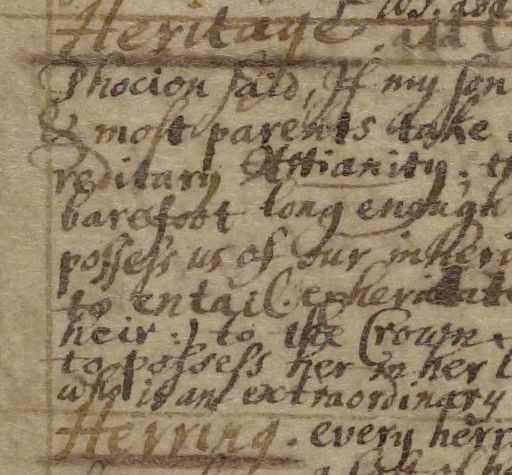 Heritage. all
Phocion said, If my son
& most parents take
reditary Xttianity; th
barefoot long enough
possess us of our inheri
to entail. exheridate
heir.) to the Crown
to possess her in her l
who is an extraordinary
Herring. every herr